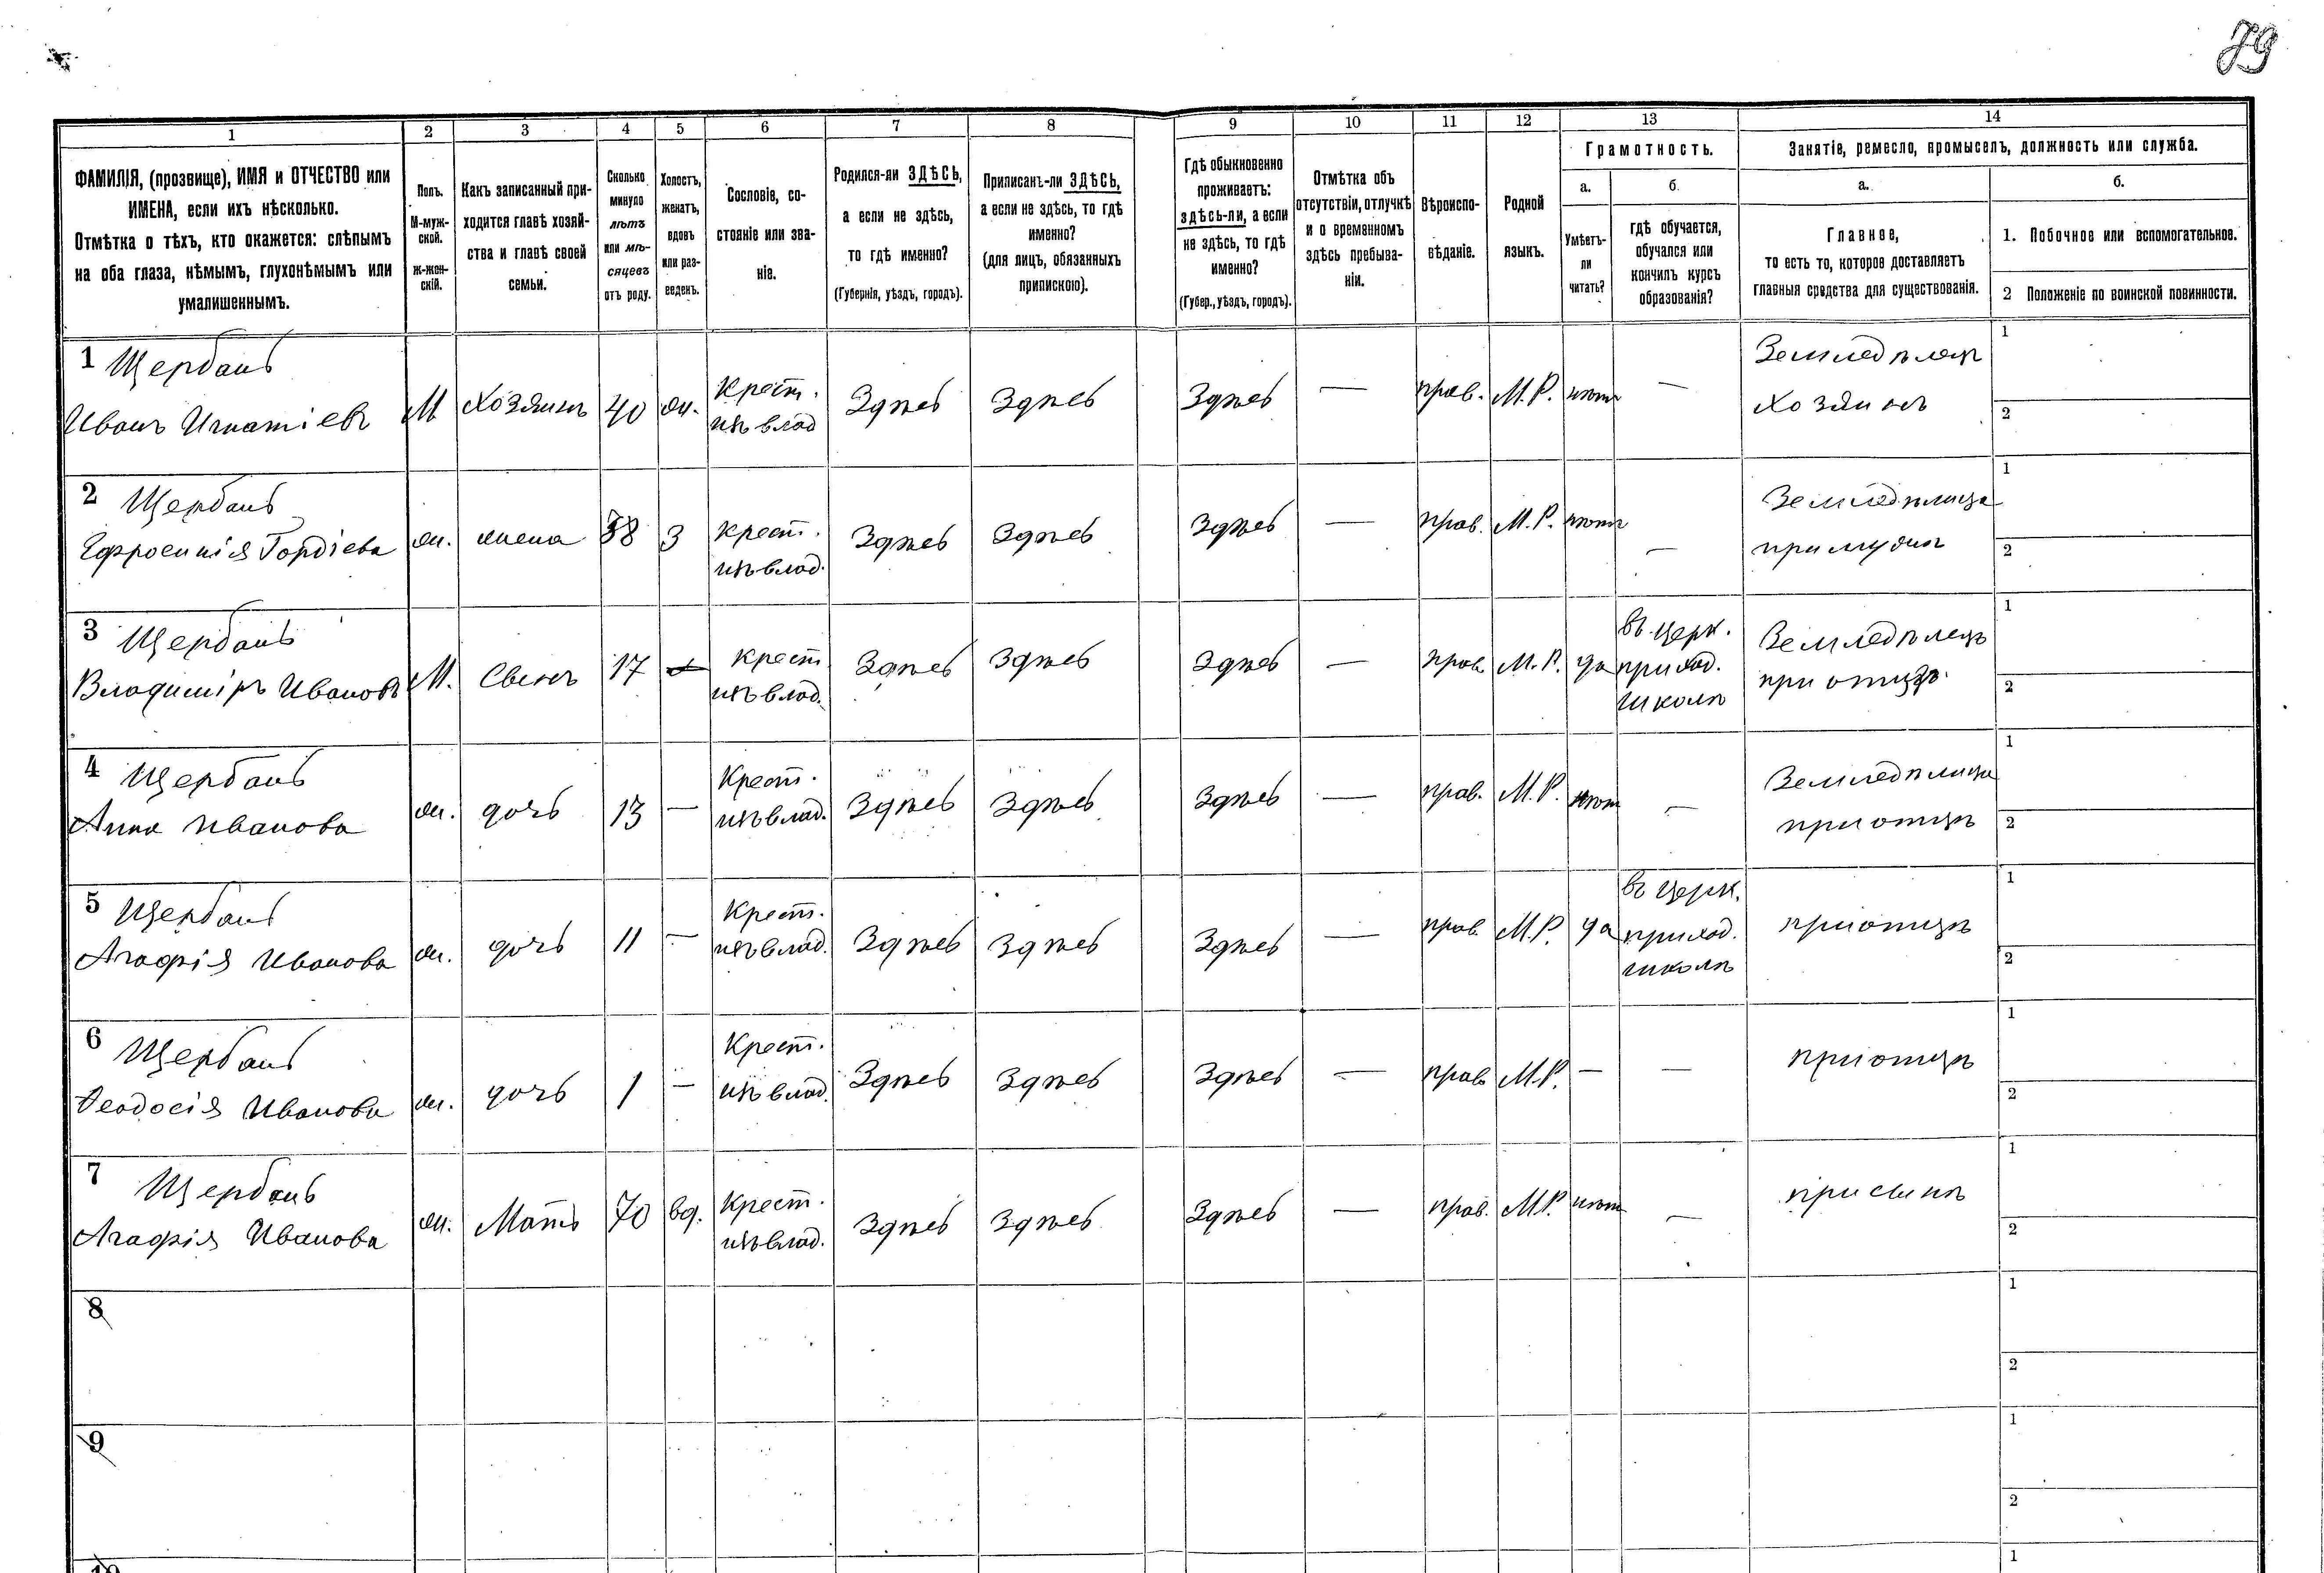 79
1 2 3 4 5 6 7 8 9 10 11 12 13 14
ФАМИЛІЯ, (прозвище), ИМЯ и ОТЧЕСТВО или
ИМЕНА, если ихъ нѣсколько.
Отмѣтка о тѣхъ, кто окажется: слѣпымъ
на оба глаза, нѣмымъ, глухонѣмымъ или
умалишеннымъ.
Полъ.
М-муж-
ской.
ж-жен-
скій.
Какъ записанный при-
ходится главѣ хозяй-
ства и главѣ своей
семьи.
Сколько
минуло
лѣтъ
или мѣ-
сяцевъ
отъ роду.
Холостъ,
женатъ,
вдовъ
или раз-
веденъ.
Сословіе, со-
стояніе или зва-
ніе.
Родился-ли ЗДѢСЬ,
а если не здѣсь,
то гдѣ именно?
(Губернія, уѣздъ, городъ).
Приписанъ-ли ЗДѢСЬ,
а если не здѣсь, то гдѣ
именно?
(для лицъ, обязанныхъ
припискою).
Гдѣ обыкновенно
проживаетъ:
здѣсь-ли, а если
не здѣсь, то гдѣ
именно?
(Губер., уѣздъ, городъ).
Отмѣтка объ
отсутствіи, отлучкѣ
и о временномъ
здѣсь пребыва-
ніи.
Вѣроиспо-
вѣданіе.
Родной
языкъ.
Грамотность.
а.
Умѣетъ-
ли
читать?
б.
гдѣ обучается,
обучался или
кончилъ курсъ
образованія?
Занятіе, ремесло, промыселъ, должность или служба.
а.
Главное,
то есть то, которое доставляетъ
главныя средства для существованія.
б.
1. Побочное или вспомогательное.
2 Положеніе по воинской повинности.
1 Щербань
Иванъ Игнатіевъ М Хозяинъ 40 ж. Крест. Здѣсь Здѣсь Здѣсь — прав. М.Р. нѣтъ — Земледѣлецъ 1
изъ влад Хозяинъ 2
2 Щербань
Ефросинія Гордіева ж. жена 38 З крест. Здѣсь Здѣсь Здѣсь — прав. М.Р. нѣтъ — Земледѣлица 1
изъ влад. при мужѣ 2
3 Щербань
Владиміръ Ивановъ М. Свенъ 17 — крест Здѣсь Здѣсь Здѣсь — прав М.Р. да въ церк. Земледѣлецъ 1
изъ влад. приход. при отцѣ 2
школѣ
4 Щербань
Анна Иванова ж. дочь 13 — Крест. Здѣсь Здѣсь Здѣсь — прав. М.Р. нѣт — Земледѣлица 1
изъ влад. при отцѣ 2
5 Щербань
Агафія Иванова ж. дочь 11 — Крест. Здѣсь Здѣсь Здѣсь — прав. М.Р. да въ церк. при отцѣ 1
изъ влад. приход. 2
школѣ
6 Щербань
Ѳеодосія Иванова ж. дочь 1 — Крест. Здѣсь Здѣсь Здѣсь — прав М.Р. — — при отцѣ 1
изъ влад. 2
7 Щербань
Агафія Иванова ж. Мать 70 вд. Крест. Здѣсь Здѣсь Здѣсь — прав. М.Р. нѣт — при синѣ 1
изъ влад. 2
8 1
2
9 1
2
10 1